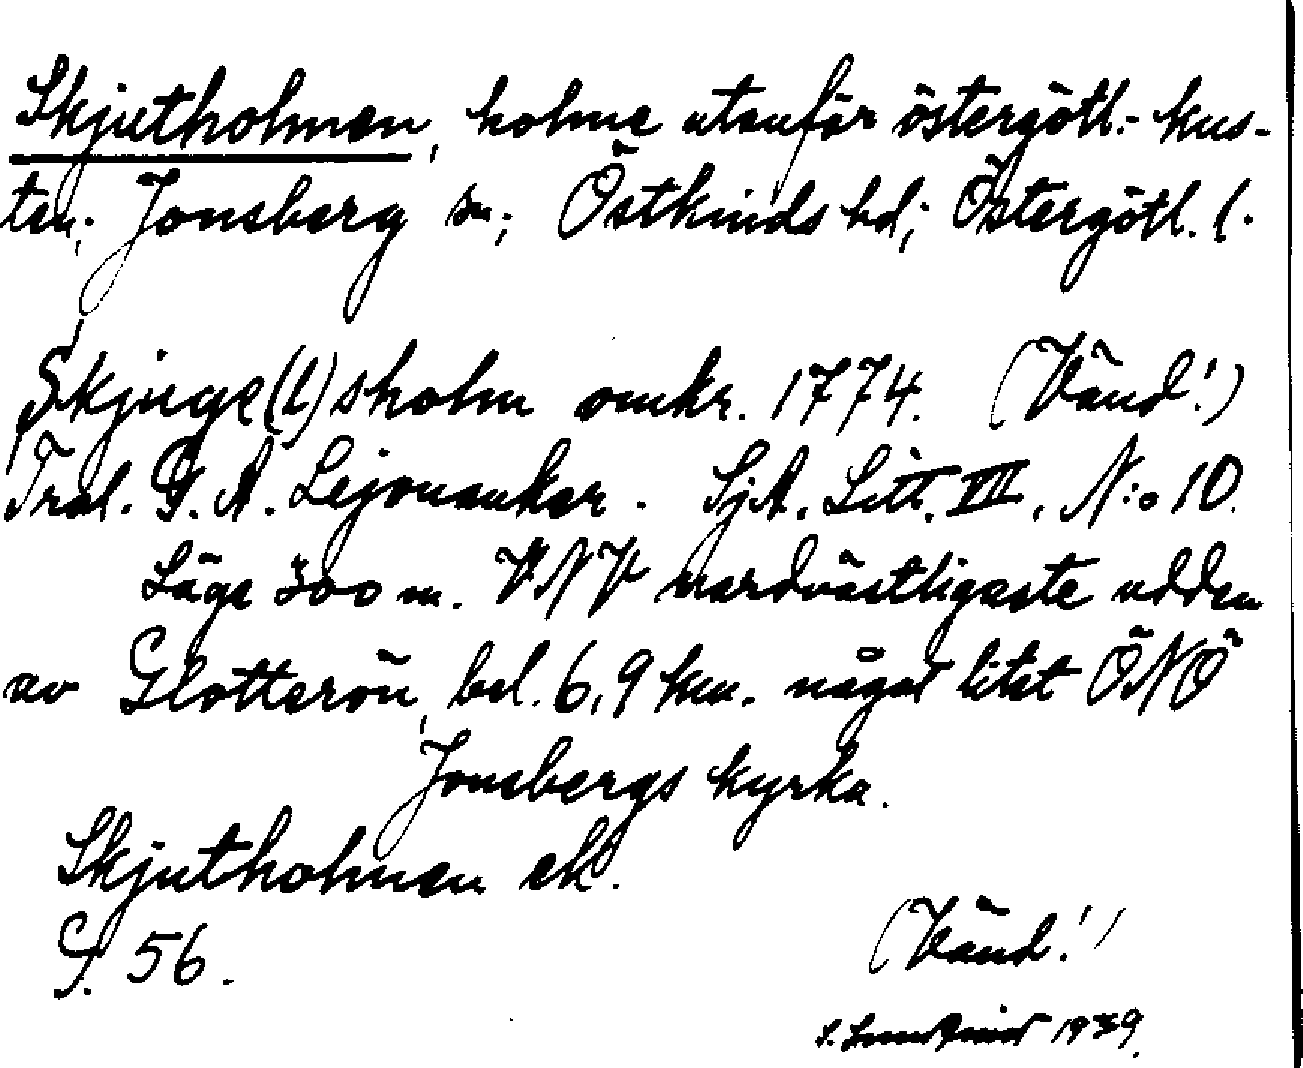 Skjutholmen, holme utanför östergötl.- kus-
ten; Jonsberg sn; Östkinds hd; Östergötl. l.
Skjuge(l)sholm omkr. 1774. (Vänd!)
Trol. G. A. Lejonankar. SjA. Litt. VII, N:o 10.
Läge 300 m. VNV nordvästligaste udden
av Glotterön, bel. 6,9 km. något litet ÖNÖ
Jonsbergs kyrka.
Skjutholmen ek.
S. 56.
(Vänd!)
1939.